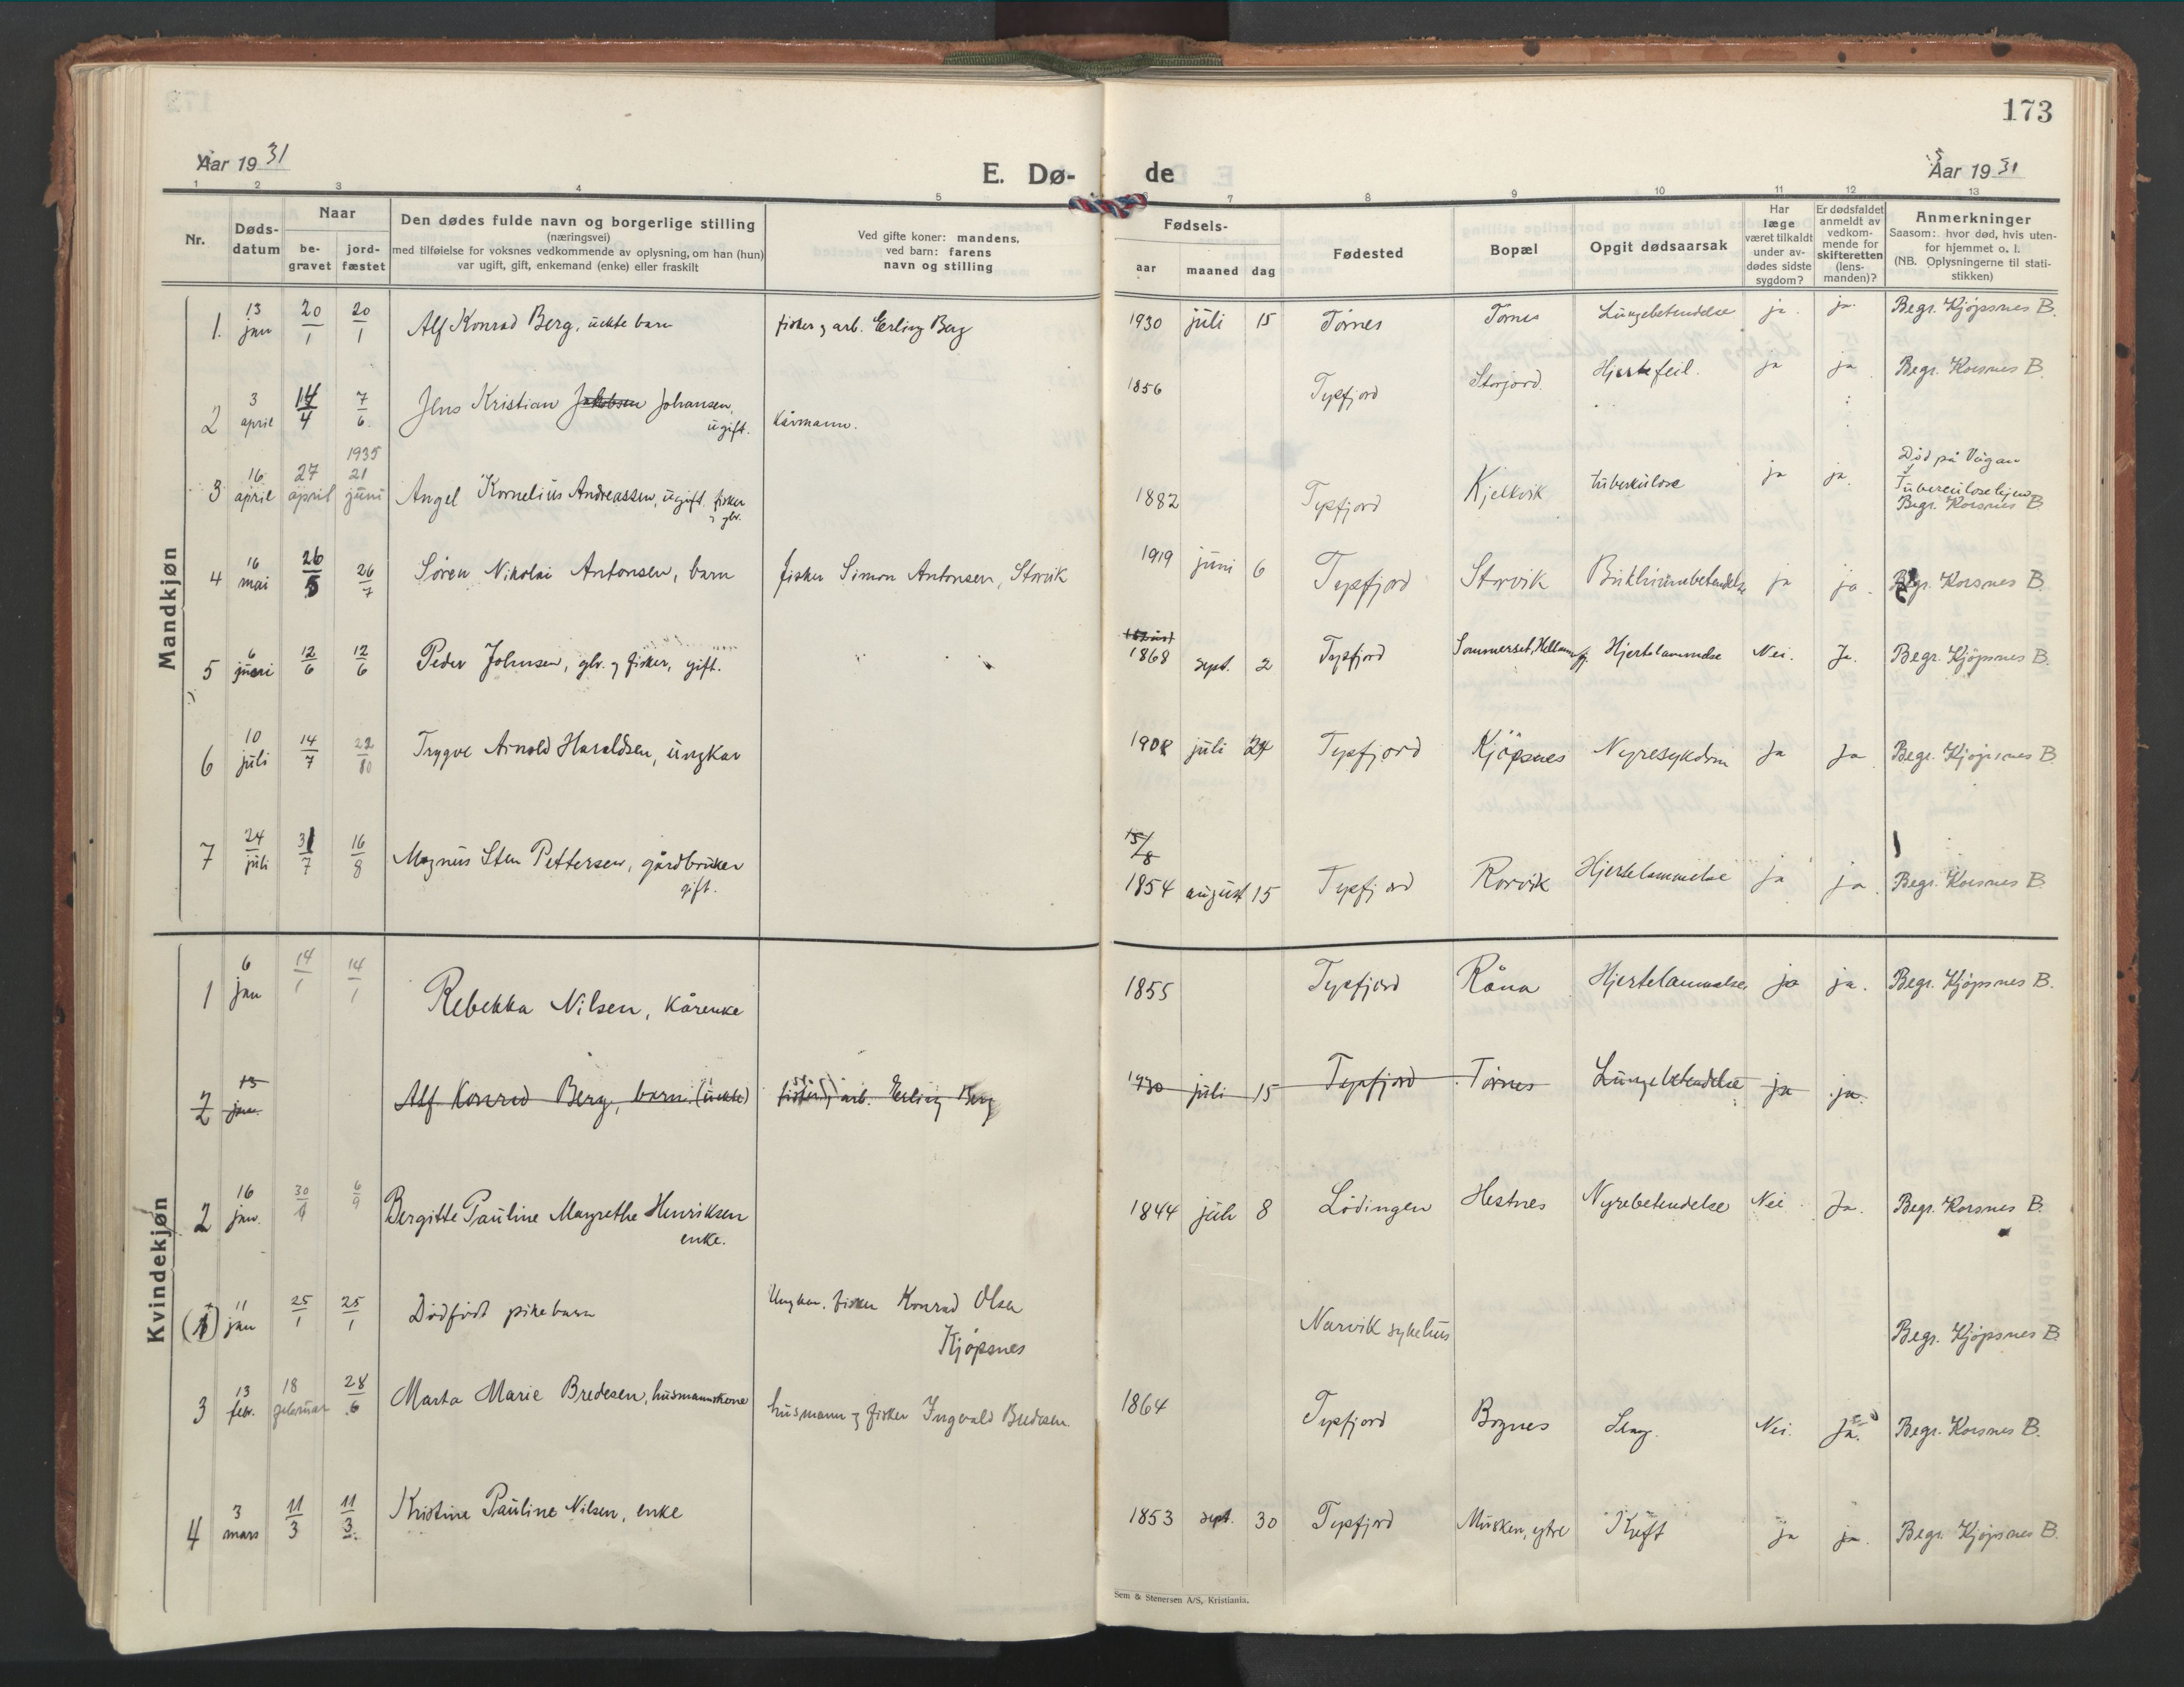 173
Aar 1931
E. Dø-
de
Aar 1931
1 2 3 4 5 6 7 8 9 10 11 12 13
Nr.
Døds-
datum
Naar
be-
gravet
jord-
fæstet
Den dødes fulde navn og borgerlige stilling
(næringsvei)
med tilføielse for voksnes vedkommende av oplysning, om han (hun)
var ugift, gift, enkemand (enke) eller fraskilt
Ved gifte koner: mandens,
ved barn: farens
navn og stilling
Fødsels-
aar maaned dag
Fødested
Bopæl
Opgit dødsaarsak
Har
læge
været tilkaldt
under av-
dødes sidste
sygdom?
Er dødsfaldet
anmeldt av
vedkom-
mende for
skifteretten
(lens-
manden)?
Anmerkninger
Saasom: hvor død, hvis uten-
for hjemmet o. l.
(NB. Oplysningerne til stati-
stikken)
Mandkjøn
1. 13 jan 20/1 20/1 Alf Konrad Berg, uekte barn fisker og arb. Erling Berg 1930 juli 15 Tørnes Tørnes Lungebetendelse ja. ja. Begr. Kjöpsnes B.
2 3 april 14/4 7/6 Jens Kristian Jakobsen Johansen, ugift. kårmann. 1856 Tysfjord Storjord. Hjertefeil. ja ja Begr. Korsnes B.
3 16 april 27 april 1935 21 juni Angel Kornelius Andreassen, ugift. fisker og gbr. 1882 Tysfjord Kjelkvik tuberkulose ja ja. Död på Vågan Tuberculosehjem Begr. Korsnes B
4 16 mai 26/5 26/7 Sören Nikolai Antonsen, barn fisker Simon Antonsen, Storvik 1919 juni 6 Tysfjord Storvik Bukhinnebetendelse ja ja. Begr. Korsnes B.
5 6 juni 12/6 12/6 Peder Johnsen, gbr. og fisker, gift. 1868 sept. 2 Tysfjord Sommerset, Hellemofj. Hjertelammelse Nei. Ja. Begr. Kjöpsnes B.
6 10 juli 14/7 22/10 Trygve Arnold Haraldsen, ungkar 1908 juli 24 Tysfjord Kjöpsnes Nyresykdom Ja Ja Begr. Kjöpsnes B.
7 24 juli 31/7 16/8 Magnus Sten Pettersen, gårdbruker gift. 15/8 1854 august 15 Tysfjord Rorvik Hjertelammelse ja ja. Begr. Korsnes B.
Kvindekjøn
1 6 jan 14/1 14/1 Rebekka Nilsen, Kårenke 1855 Tysfjord Råna Hjertelammelse ja ja. Begr. Kjöpsnes B.
2 13 jan. Alf Konrad Berg, barn (uekte) fisker og arb. Erling Berg 1930 juli 15 Tysfjord Tørnes Lungebetendelse ja ja.
2 16 jan. 30/1 6/9 Bergitte Pauline Margrethe Henriksen enke. 1844 juli 8 Lödingen Hestnes Nyrebetendelse Nei Ja. Begr. Korsnes B.
(1) 11 jan 25/1 25/1 Dödfödt pikebarn Ungkar, fisker Konrad Olsen
Kjöpsnes Narvik sykehus Begr. Kjöpsnes B.
3 13 febr. 18 februar 28/6 Marta Marie Bredesen, husmannskone husmann og fisker Ingvald Bredesen. 1864 Tysfjord Bognes Slag. Nei. Ja. Begr. Korsnes B.
4 3 mars 11/3 11/3. Kristine Pauline Nilsen, enke 1853 sept. 30 Tysfjord Musken, ytre Kreft ja ja. Begr. Kjöpsnes B.
Sem & Stenersen A/S, Kristiania.